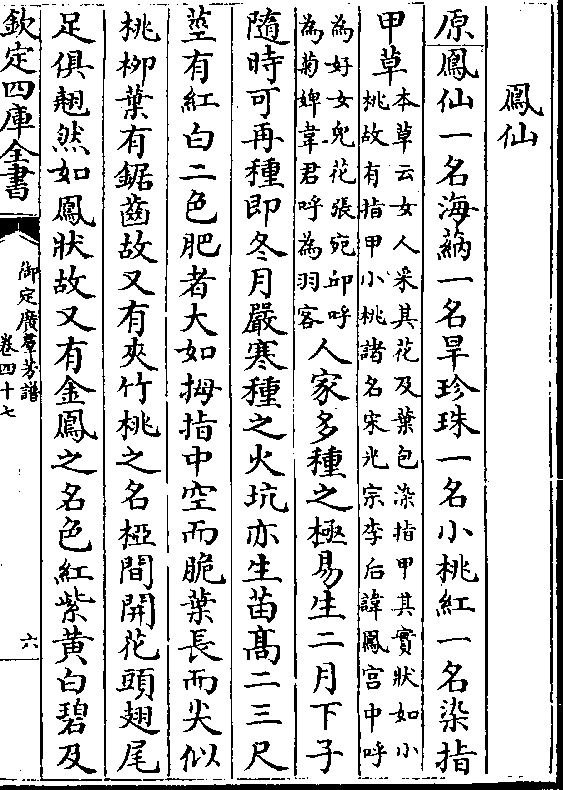 鳳仙
原鳳仙一名海蒳一名旱珍珠一名小桃紅一名染指
甲草本草云女人采其花及葉包染指甲其實狀如小
桃故有指甲小桃諸名宋光宗李后諱鳳宫中呼
為好女兒花張宛邱呼
為菊婢韋君呼為羽客人家多種之極易生二月下子
隨時可再種即冬月嚴寒種之火坑亦生苗高二三尺
莖有紅白二色肥者大如拇指中空而脆葉長而尖似
桃柳葉有鋸齒故又有夾竹桃之名椏間開花頭翅尾
足俱翹然如鳳狀故又有金鳳之名色紅紫黄白碧及
欽定四庫全書
御定廣羣芳譜
卷四十七
六